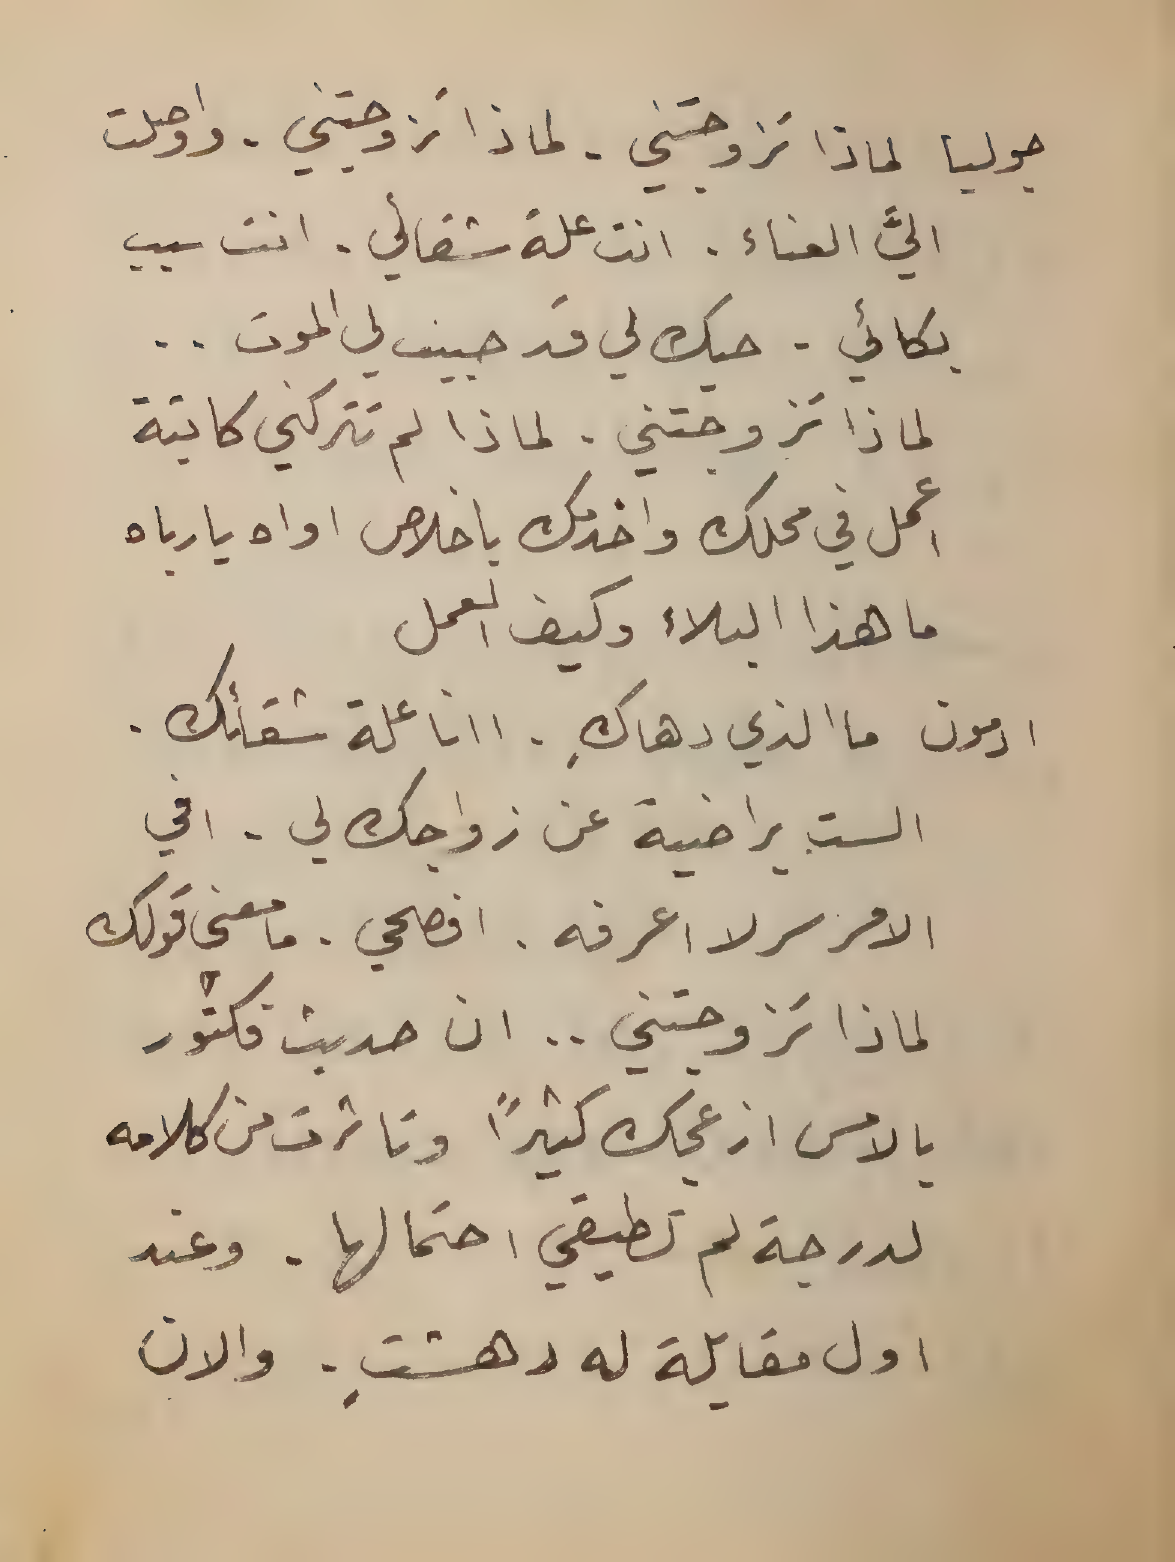 جوليا لماذا تزوجتني - لماذا تزوجتني - واوصلت
اليَّ العناء . انت علة شقائي - انت سبب
بكائي - حبك لي قد حبب لي الموت ..
لماذا تزوجتني . لماذا لم تتركني كابنة
اعمل في محلك واخدمك باخلاص اواه يارباه
ما هذا البلاء وكيف العمل
ادمون ما الذي دهاكِ . اانا علة شقائك .
الستِ براضية عن زواجك لي - افي
الامر سر لا اعرفه . افصحي . ما معنى قولك
لماذا تزوجتني .. ان حديث فكتور
بالامس ازعجك كثيرًا وتاثرت من كلامه
لدرجة لم تطيقي احتمالها - وعند
اول مقابلة له دهشتِ . والان